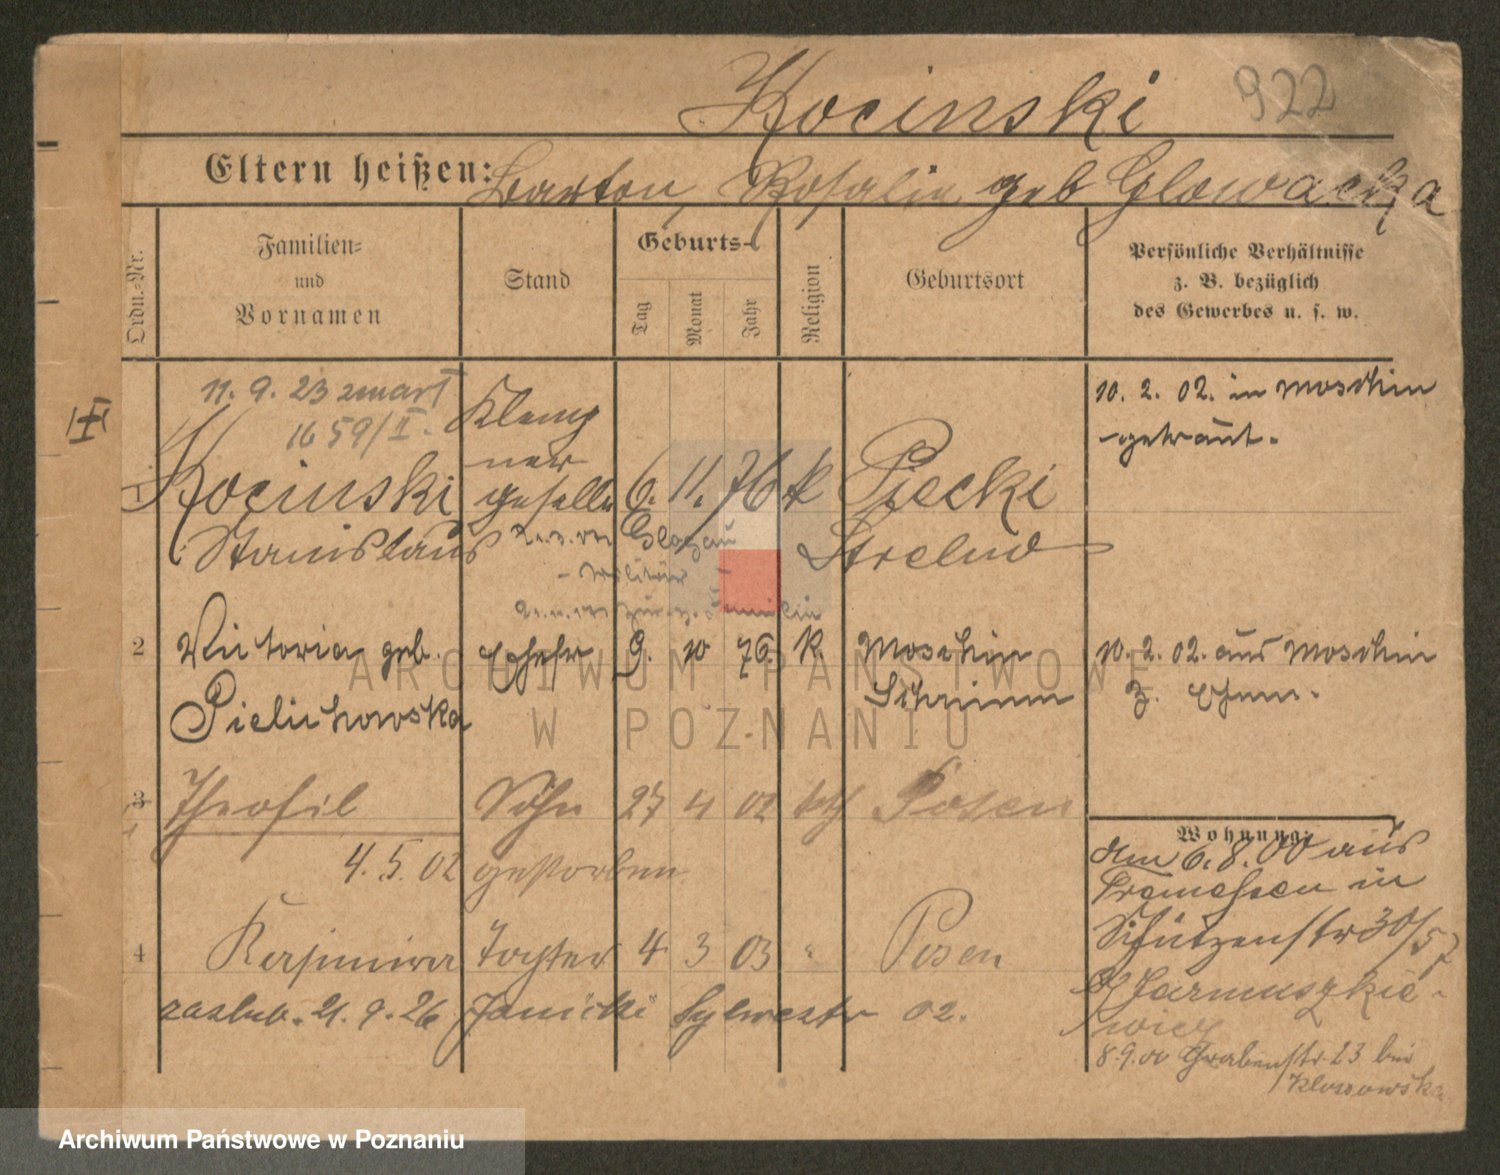 Kocinski
922
Eltern heißen: Barton, Rosalie geb Glowacka
Ordn.-Nr.
Familien-
und
Vornamen
Stand
Geburts-
Tag
Monat
Jahr
Religion
Geburtsort
Persönliche Verhältnisse
z. B. bezüglich
des Gewerbes u. s. w.
11. 9. 23 zmarł
1659/II.
1 Kocinski
Stanislaus
Klemp
ner
geselle
6. 11. 76 k
Piecki
Strelno
10. 2. 02. in Moschin
getraut.
Glogau
Militär
2 Victoria geb.
Pieluchowska
Ehefr
9. 10 76. k.
Moschin
Schrimm
10. 2. 02. aus Moschin
z. Ehem.
3 Theofil Sohn 27 4 02 kth Posen
4. 5. 02 gestorben
4 Kasimira Tochter 4 3 03 " Posen
zaślub. 21. 9. 26 Janicki Sylwestr 02.
Wohnung:
Am 6. 8. 00 aus
Tremessen in
Schützenstr 30/57
Jarmuszkie-
wicz
8. 9. 00 Grabenstr. 23 bei
Klossowska
ARCHIWUM PAŃSTWOWE
W POZNANIU
Archiwum Państwowe w Poznaniu